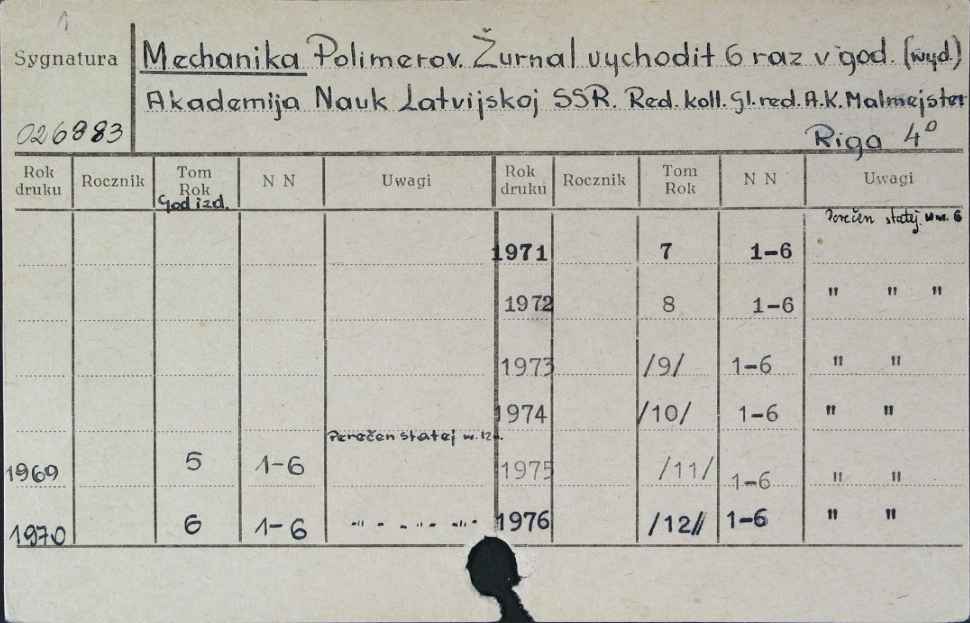 1
Sygnatura
Mechanika Polimerov. Žurnal vychodit 6 raz v god. (wyd.)
Akademija Nauk Latvijskoj SSR. Red. koll. Gl. red. A.K. Malmejster
026883
Riga 4°
Rok druku Rocznik Tom Rok N N Uwagi Rok druku Rocznik Tom Rok N N Uwagi
God izd.
Perečen statej. w nr. 6
1971 7 1-6
1972 8 1-6 " " "
1973 /9/ 1-6 " "
1974 /10/ 1-6 " "
Perečen statej w. 12
1969 5 1-6 1975 /11/ 1-6 " "
1970 6 1-6 -"- - -"- -"- 1976 /12// 1-6 " "